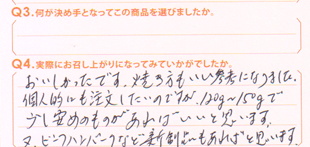 Q3.何が決め手となってこの商品を選びましたか。
Q4.実際にお召し上がりになってみていかがでしたか。
おいしかったです。焼き方もいい参考になりました。
個人的にも注文したいのですが、120g〜150gで
少し安めのものがあればいいと思います。
又、ビーフハンバーグなど新製品もあればと思います。